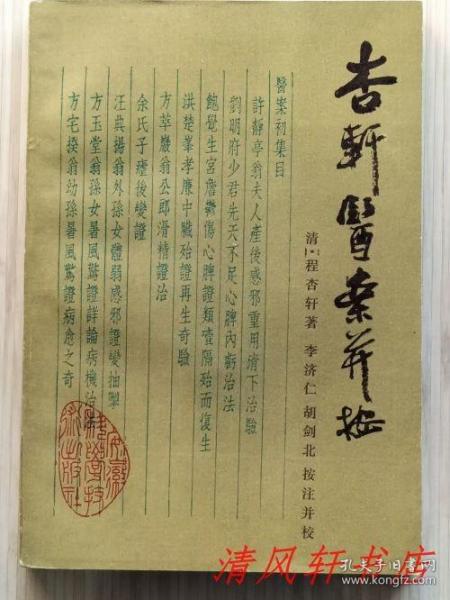 杏轩医案并按
清·程杏轩著 李济仁 胡剑北 按注并校
醫案初集目
許靜亭翁夫人產後感邪重用清下治驗
劉明府少君先天不足心脾內虧治法
鮑覺生宮詹鬱傷心脾證類噎隔殆而復生
洪楚峯孝廉中臟殆證再生奇驗
方萃巖翁公郎滑精證治
余氏子瘧後變證
汪典揚翁外孫女體弱感邪證變抽掣
方玉堂翁孫女暑風驚證詳論病機治法
方宅揆翁幼孫暑風驚證病愈之奇
安徽科學技術出版社
清风轩书店
孔夫子旧书网
www.kongfz.com